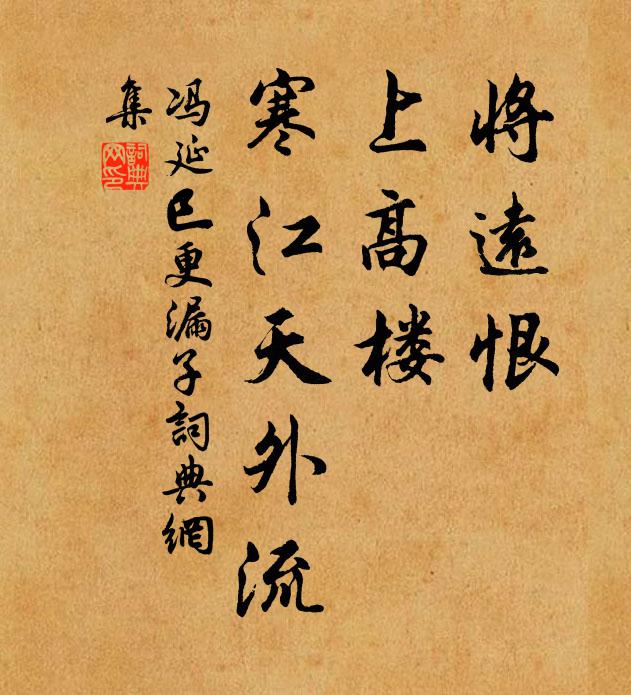 将遠恨
上高楼
寒江天外流
冯延巳更漏子詞典網
集
詞典网印